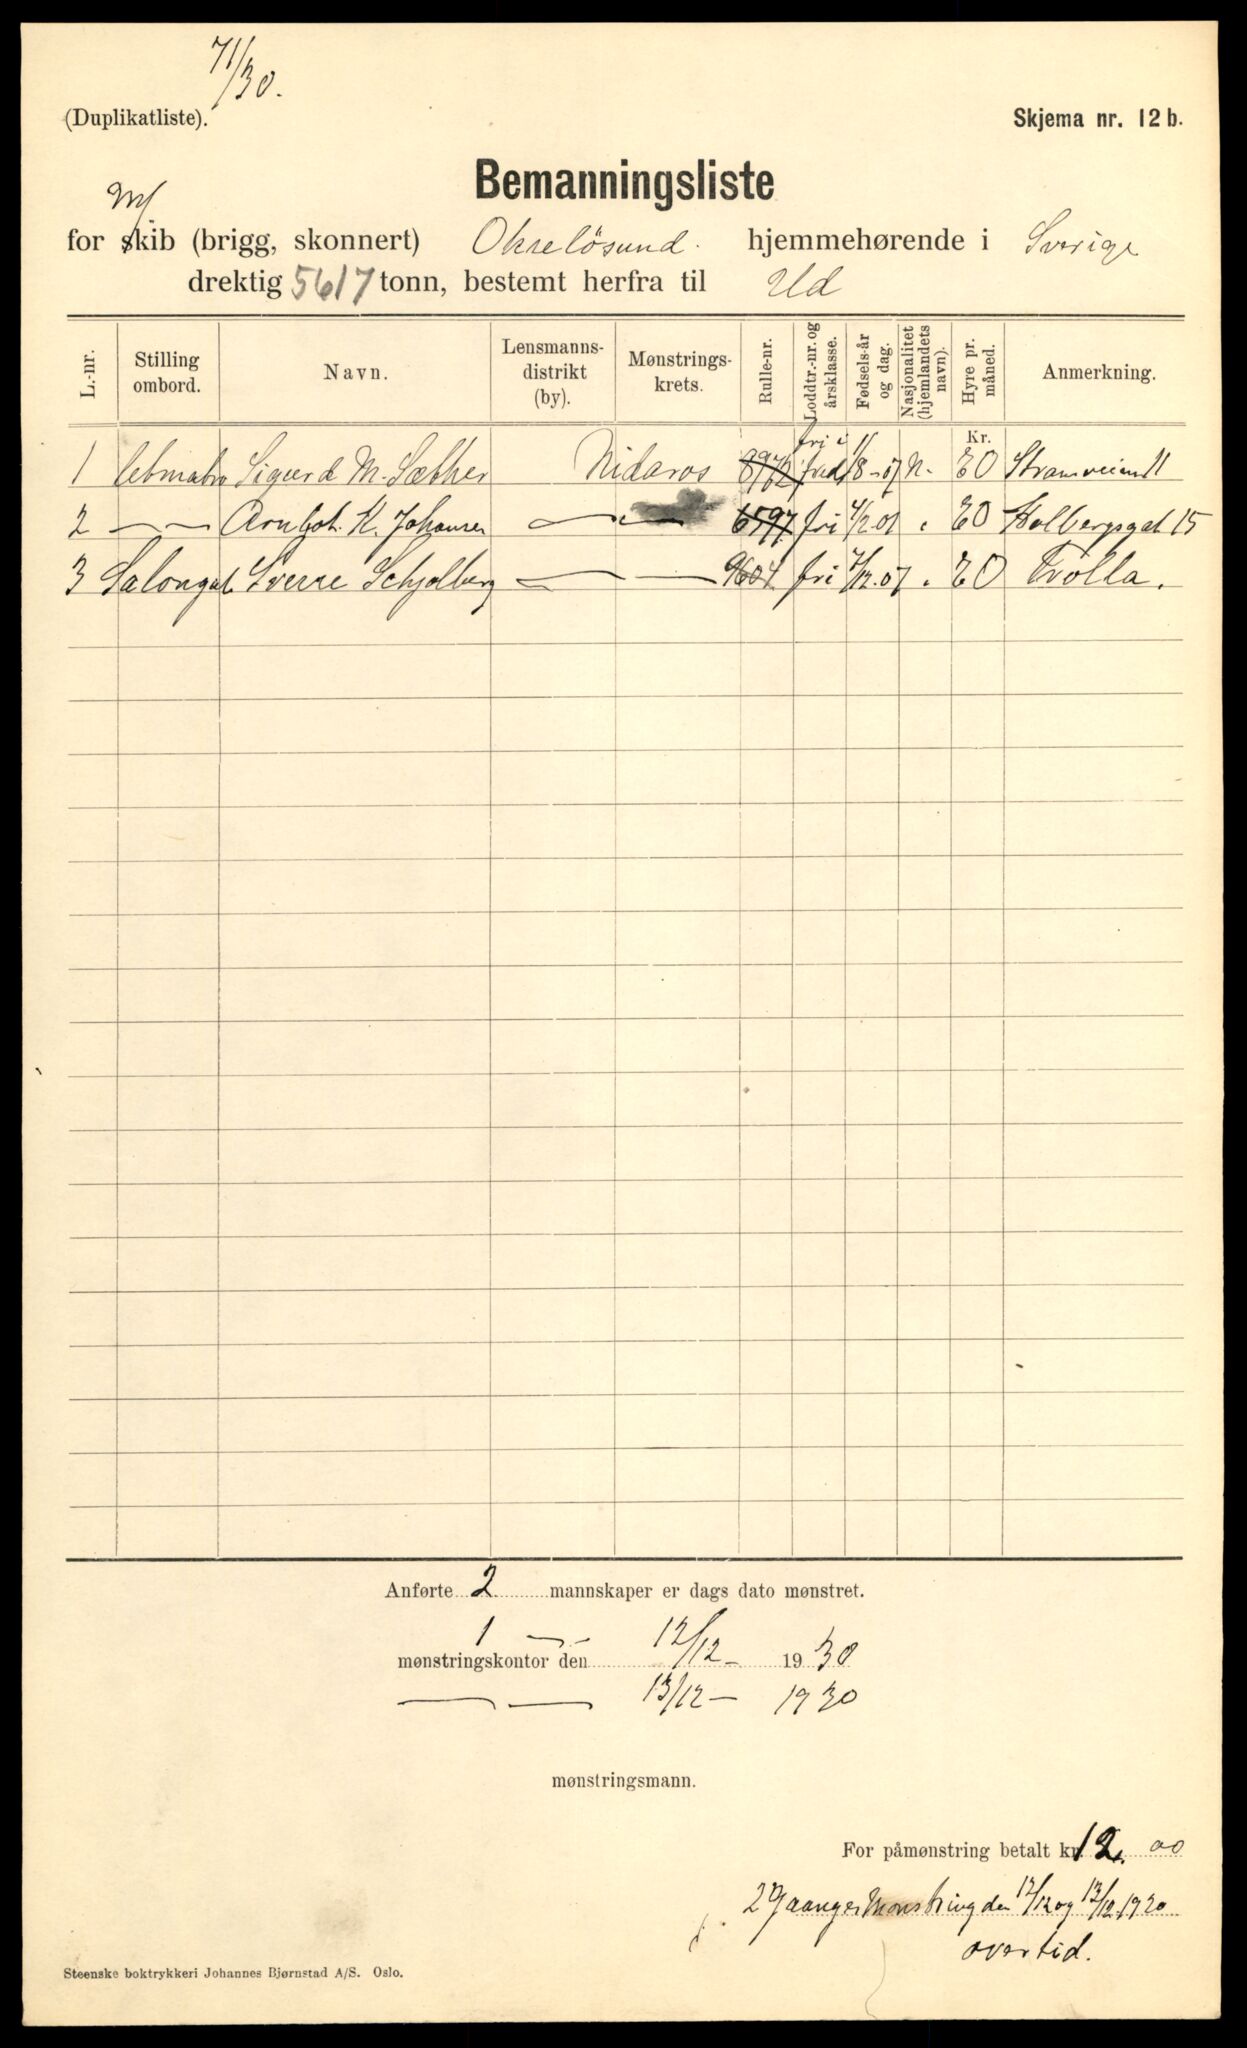 71/30.
(Duplikatliste).
Skjema nr. 12 b.
Bemanningsliste
M/
for skib (brigg, skonnert) Okselösund. hjemmehørende i Sverige
drektig 5617 tonn, bestemt herfra til Ud
L.-nr. Stilling ombord. Navn. Lensmannsdistrikt (by). Mønstringskrets. Rulle-nr. Loddtr.-nr. og årsklasse. Fødsels-år og dag. Nasjonalitet (hjemlandets navn). Hyre pr. måned. Anmerkning.
Kr.
1 Sigurd M. Sæther Nidaros 8962 fri i fred 1/8-07 N. 20 Stramveien 11
2 — — K. Johansen — — 6597 fri 4/2 01 . 20 Holbergsgat 15
3 Salongut. Sverre Schjolberg — — 9604 fri 7/12.07 . 20 Trolla.
Anførte 2 mannskaper er dags dato mønstret.
1 —
mønstringskontor den 12/12- 1930
— — 13/12- 1930
mønstringsmann.
For påmønstring betalt kr. 12. 00
2 Gaanger Mønstring den 12/12 og 13/12 1930
overtid.
Steenske boktrykkeri Johannes Bjørnstad A/S. Oslo.